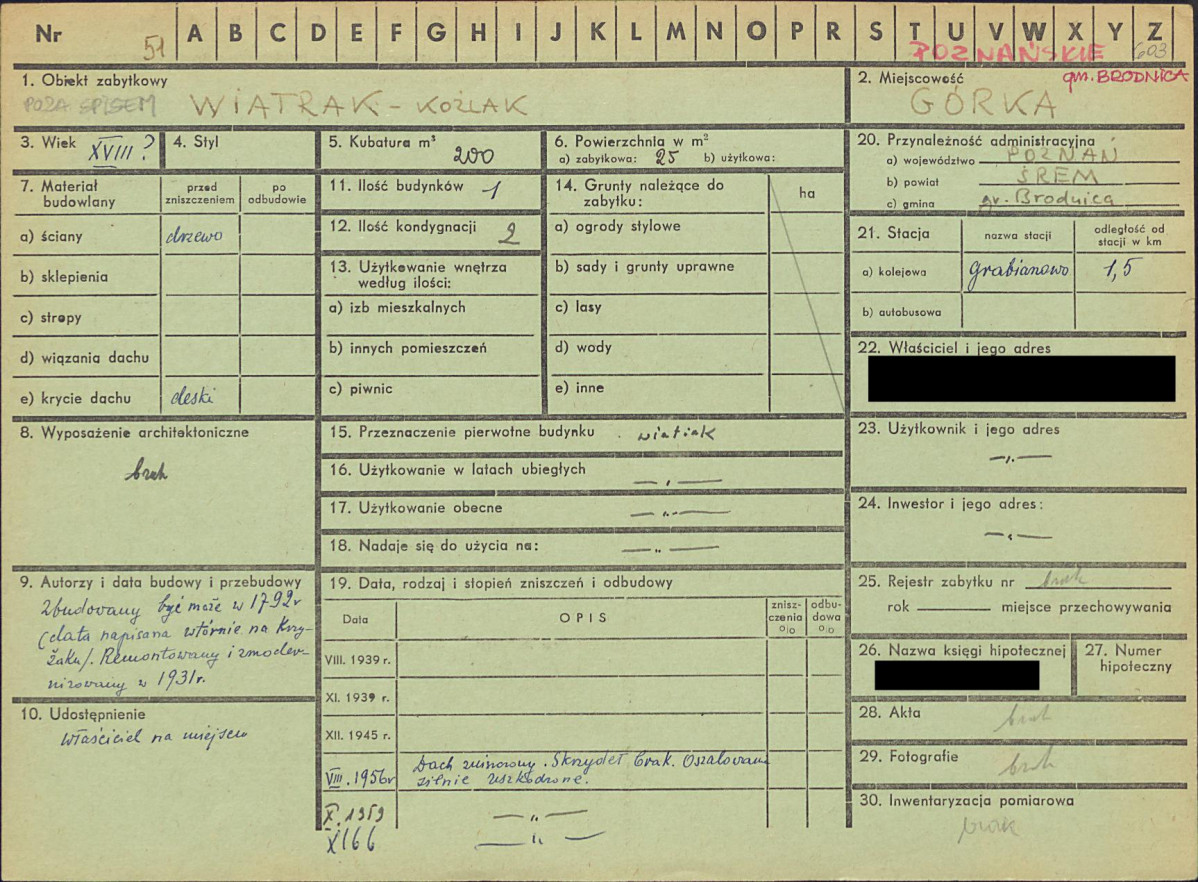 Nr 51 A B C D E F G H I J K L M N O P R S T U V W X Y Z
POZNAŃSKIE 603
1. Obiekt zabytkowy
POZA SPISEM WIATRAK - KOŹLAK
2. Miejscowość gm. BRODNICA
GÓRKA
3. Wiek XVIII?
4. Styl
5. Kubatura m³ 200
6. Powierzchnia w m²
a) zabytkowa: 25 b) użytkowa:
7. Materiał budowlany
przed zniszczeniem
po odbudowie
a) ściany drzewo
b) sklepienia
c) stropy
d) wiązania dachu
e) krycie dachu deski
8. Wyposażenie architektoniczne
brak
9. Autorzy i data budowy i przebudowy
Zbudowany być może w 1792 r
(data napisana wtórnie na Krzy-
żaku). Remontowany i zmoder-
nizowany w 1931 r.
10. Udostępnienie
właściciel na miejscu
11. Ilość budynków 1
12. Ilość kondygnacji 2
13. Użytkowanie wnętrza
według ilości:
a) izb mieszkalnych
b) innych pomieszczeń
c) piwnic
14. Grunty należące do
zabytku:
ha
a) ogrody stylowe
b) sady i grunty uprawne
c) lasy
d) wody
e) inne
15. Przeznaczenie pierwotne budynku wiatrak
16. Użytkowanie w latach ubiegłych — „ —
17. Użytkowanie obecne — „ —
18. Nadaje się do użycia na: — „ —
19. Data, rodzaj i stopień zniszczeń i odbudowy
Data
OPIS
znisz-
czenia
%
odbu-
dowa
%
VIII. 1939 r.
XI. 1939 r.
XII. 1945 r.
VIII. 1956 r Dach zmurowany. Skrzydeł brak. Oszalowanie
silnie uszkodzone.
X. 1959 — „ —
XI 66 — „ —
20. Przynależność administracyjna
a) województwo POZNAŃ
b) powiat ŚREM
c) gmina gr. Brodnica
21. Stacja
nazwa stacji
odległość od
stacji w km
a) kolejowa Grabianowo 1,5
b) autobusowa
22. Właściciel i jego adres
23. Użytkownik i jego adres
— „ —
24. Inwestor i jego adres:
— „ —
25. Rejestr zabytku nr brak
rok miejsce przechowywania
26. Nazwa księgi hipotecznej
27. Numer
hipoteczny
28. Akta brak
29. Fotografie brak
30. Inwentaryzacja pomiarowa
brak